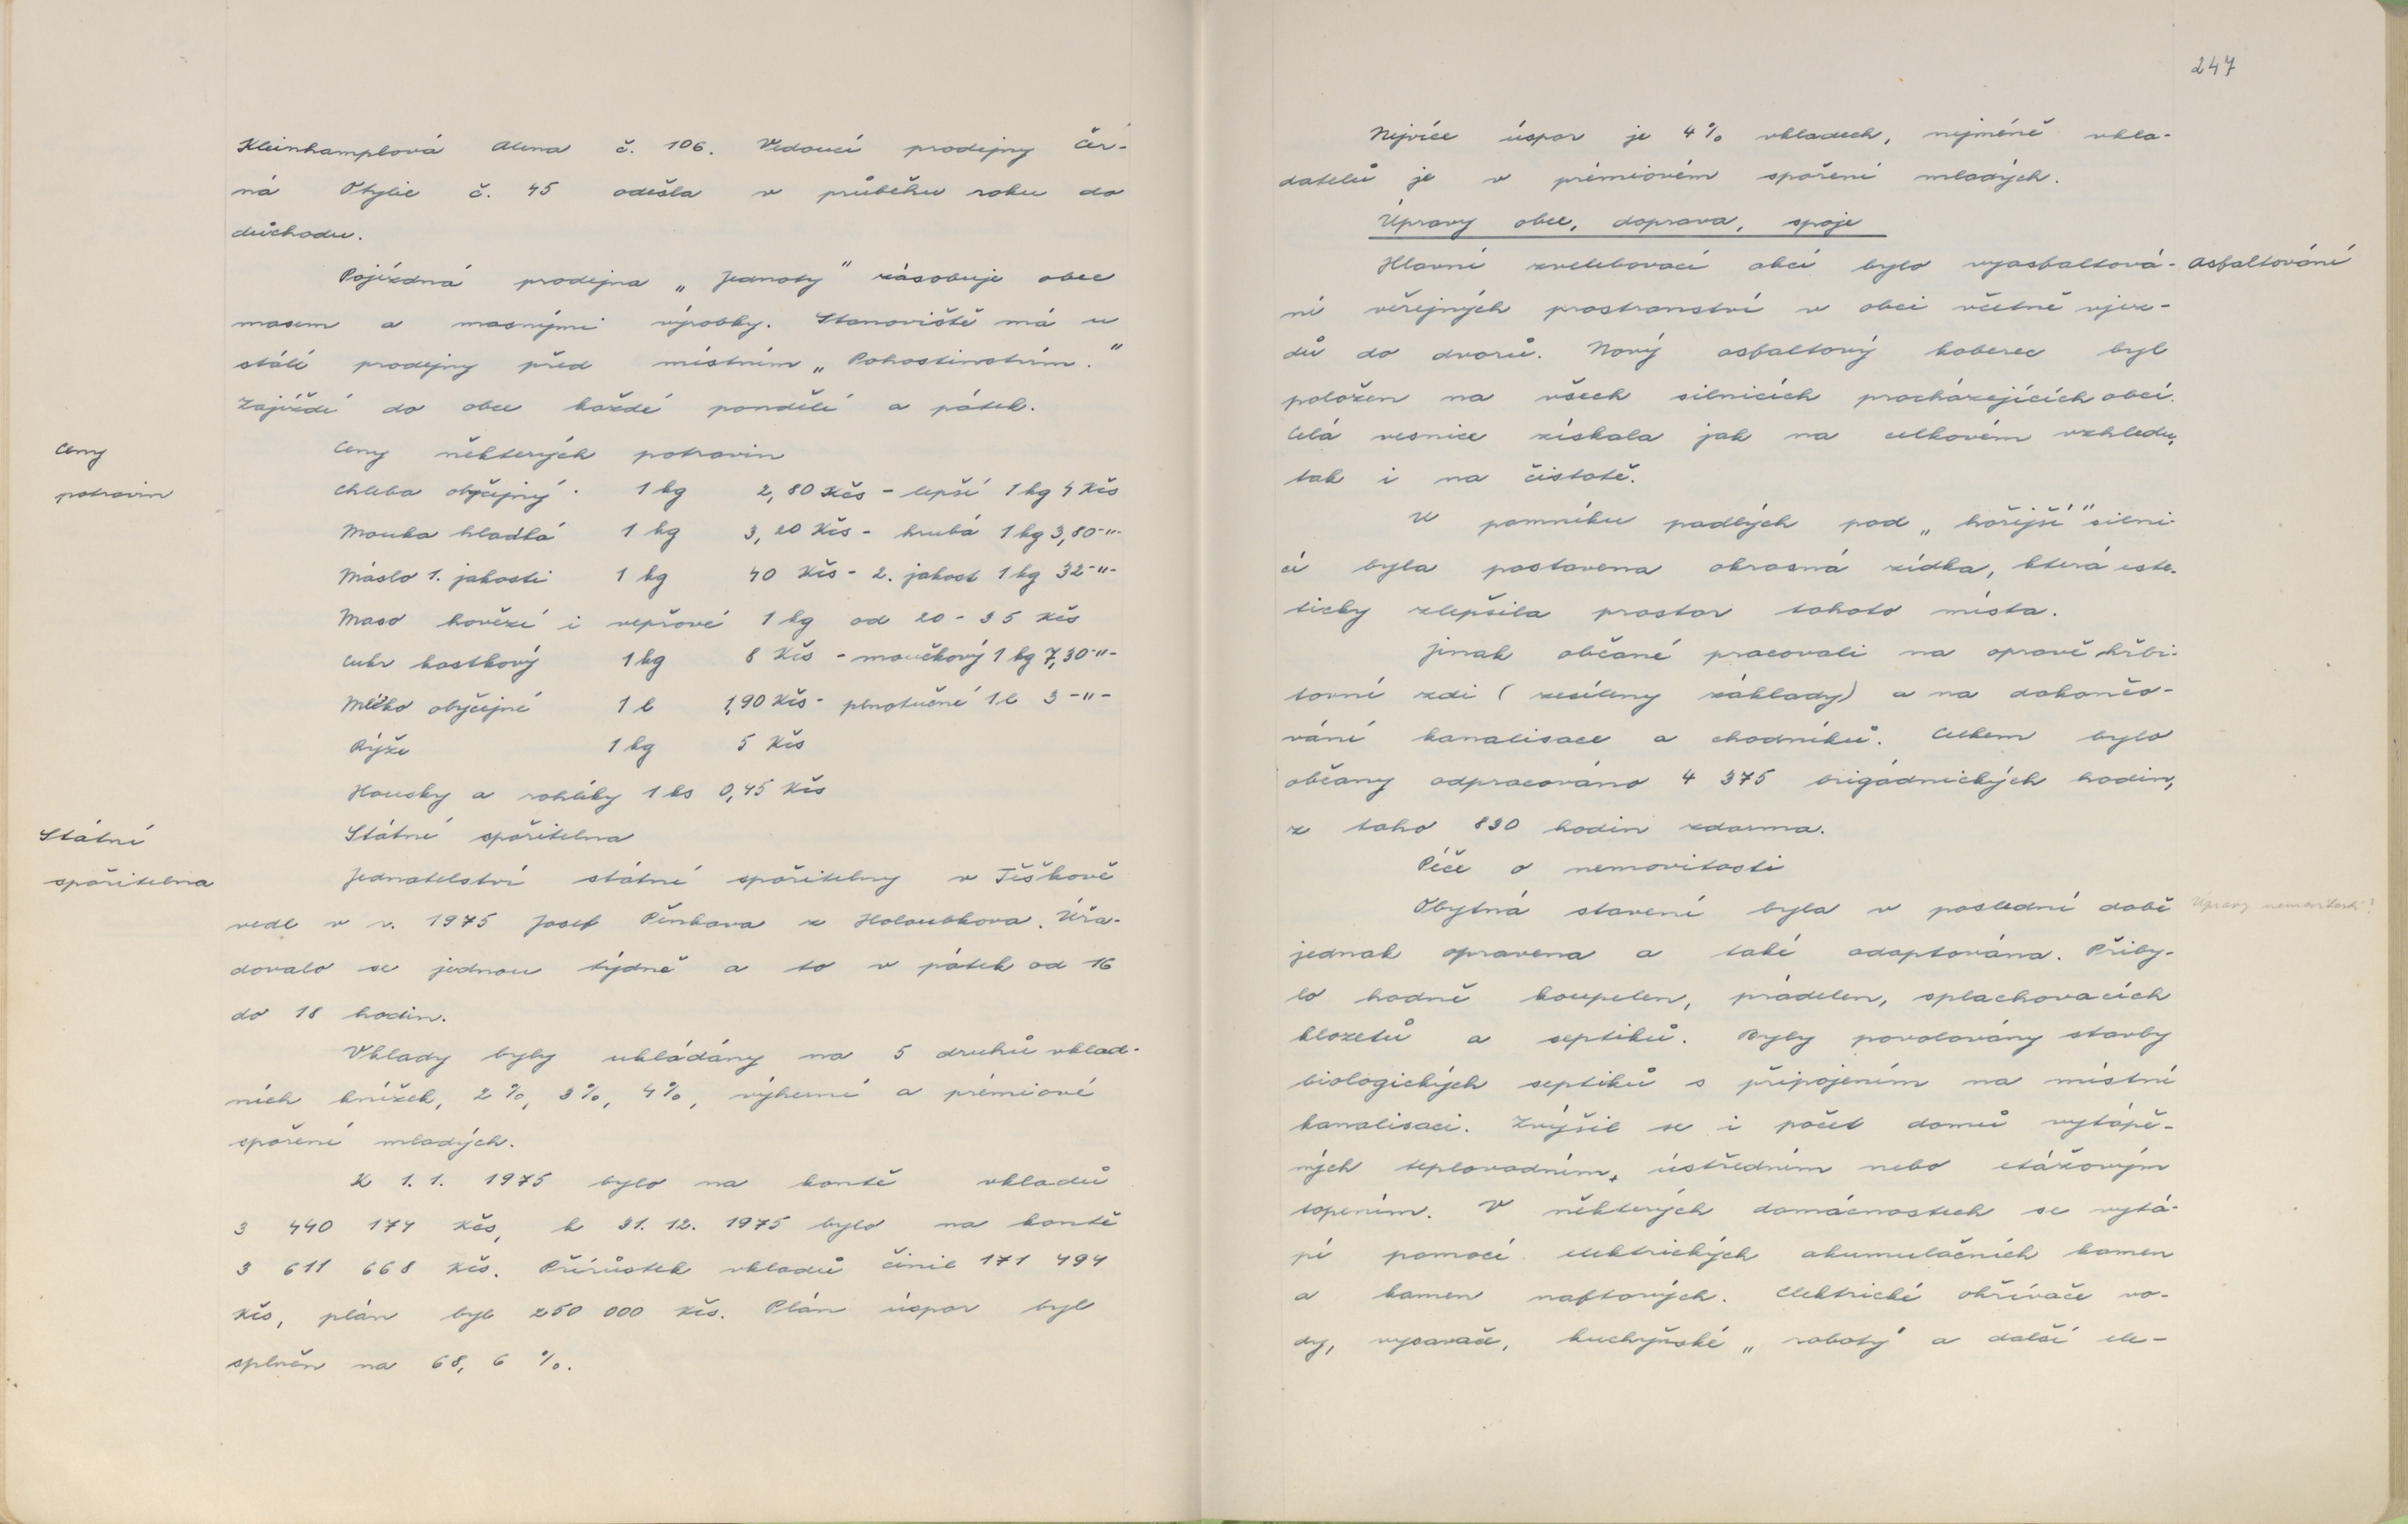 Kleinhamplová Alena č. 106. Vedoucí prodejny Čer-
ná Otylie č. 45 odešla v průběhu roku do
důchodu.
Pojízdná prodejna „Jednoty" zásobuje obec
masem a masnými výrobky. Stanoviště má u
stálé prodejny před místním „Pohostinstvím."
Zajíždí do obce každé pondělí a pátek.
Ceny
potravin
Ceny některých potravin
Chleba obyčejný 1 kg 2,80 Kčs - lepší 1 kg 4 Kčs
Mouka hladká 1 kg 3,20 Kčs - hrubá 1 kg 3,80 -"-
Máslo 1. jakosti 1 kg 40 Kčs - 2. jakost 1 kg 32 -"-
Maso hovězí i vepřové 1 kg od 20 - 35 Kčs
Cukr kostkový 1 kg 8 Kčs - moučkový 1 kg 7,30 -"-
Mléko obyčejné 1 l 1,90 Kčs - plnotučné 1 l 3 -"-
Rýže 1 kg 5 Kčs
Housky a rohlíky 1 ks 0,45 Kčs
Státní
spořitelna
Státní spořitelna
Jednatelství státní spořitelny v Těškově
vedl v r. 1975 Josef Pěnkava z Holoubkova. Úřa-
dovalo se jednou týdně a to v pátek od 16
do 18 hodin.
Vklady byly ukládány na 5 druhů vklad-
ních knížek, 2%, 3%, 4%, výherní a prémiové
spoření mladých.
K 1. 1. 1975 bylo na kontě vkladů
3 440 174 Kčs, k 31. 12. 1975 bylo na kontě
3 611 668 Kčs. Přírůstek vkladů činil 171 494
Kčs, plán byl 250 000 Kčs. Plán úspor byl
splněn na 68, 6 %.
247
Nejvíce úspor je 4% vkladech, nejméně vkla-
datelů je v prémiovém spoření mladých.
Úpravy obce, doprava, spoje
Asfaltování
Hlavní zvelebovací akcí bylo vyasfaltová-
ní veřejných prostranství v obci včetně vjez-
dů do dvorů. Nový asfaltový koberec byl
položen na všech silnicích procházejících obcí.
Celá vesnice získala jak na celkovém vzhledu,
tak i na čistotě.
U pomníku padlých pod „hořejší" silni-
cí byla postavena okrasná zídka, která este-
ticky zlepšila prostor tohoto místa.
Jinak občané pracovali na opravě hřbi-
tovní zdi (zesíleny základy) a na dokončo-
vání kanalisace a chodníků. Celkem bylo
občany odpracováno 4 375 brigádnických hodin,
z toho 830 hodin zdarma.
Péče o nemovitosti
Úpravy nemovitostí
Obytná stavení byla v poslední době
jednak opravena a také adaptována. Přiby-
lo hodně koupelen, prádelen, splachovacích
klozetů a septiků. Byly povolovány stavby
biologických septiků s připojením na místní
kanalisaci. Zvýšil se i počet domů vytápě-
ných teplovodním, ústředním nebo etážovým
topením. V některých domácnostech se vytá-
pí pomocí elektrických akumulačních kamen
a kamen naftových. Elektrické ohřívače vo-
dy, vysavače, kuchyňské „roboty" a další ele-